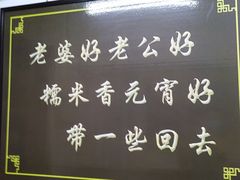 老婆好老公好
糯米香元宵好
带一些回去